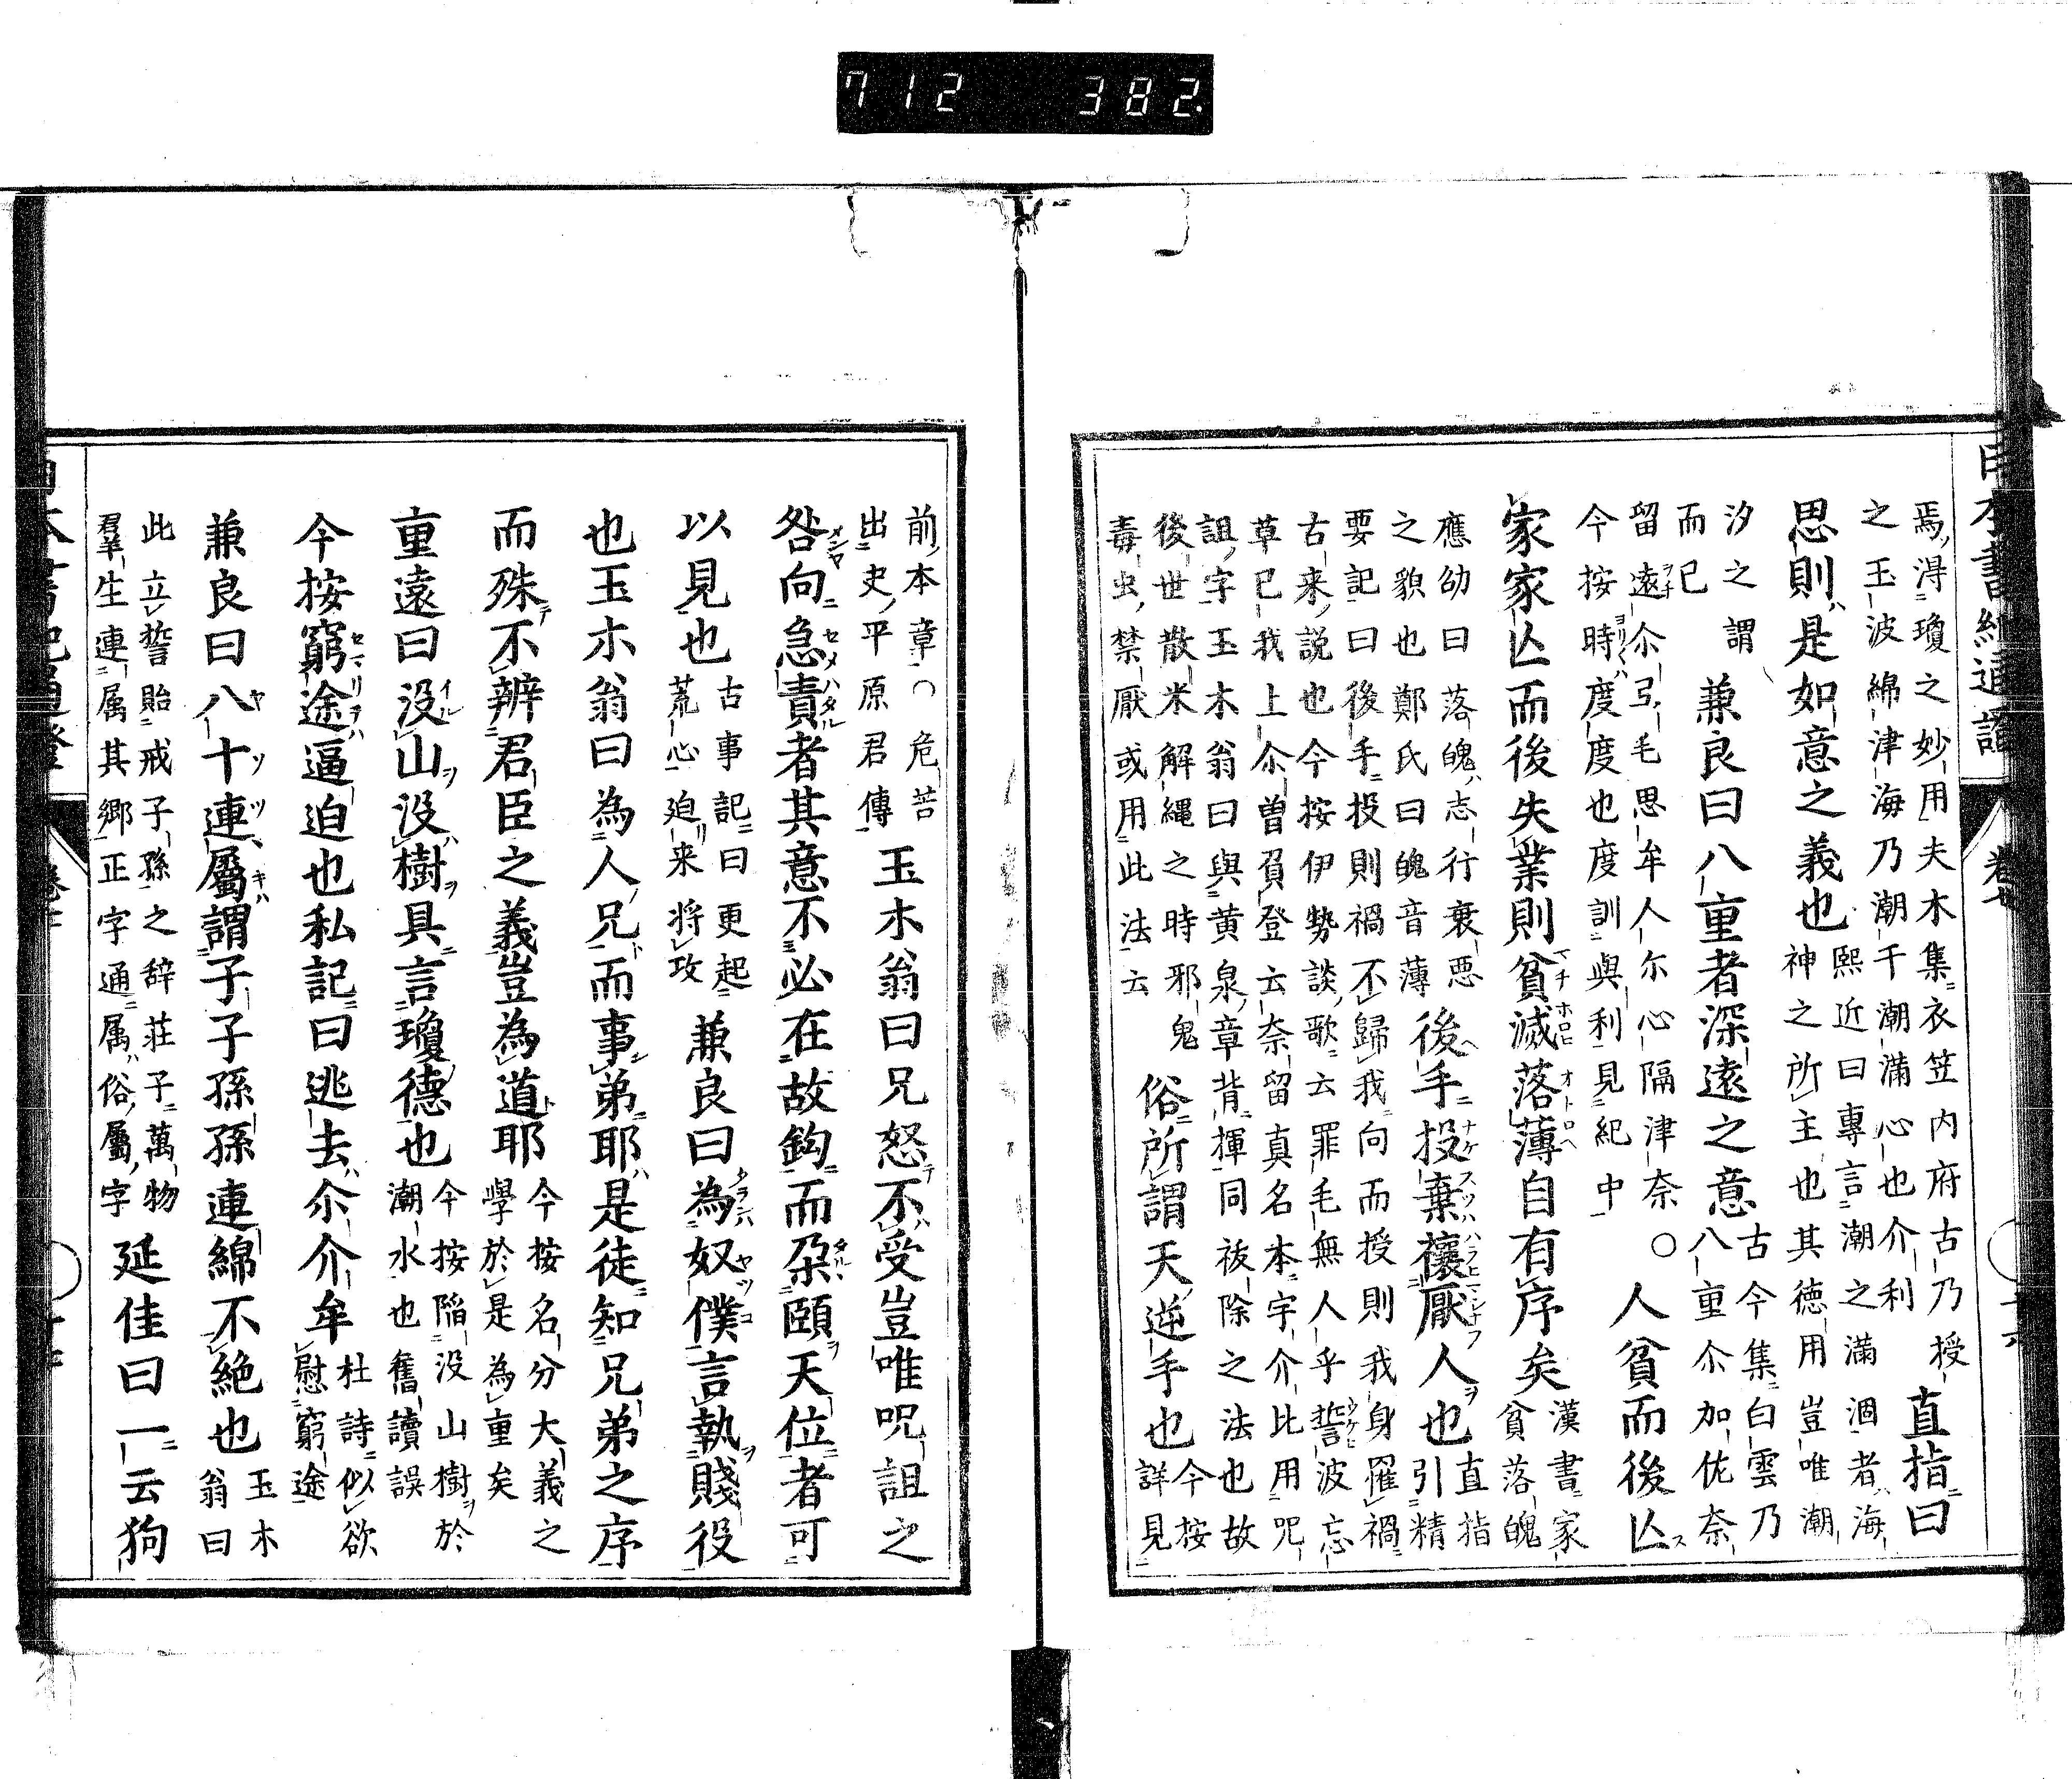 712 382
日本書紀通證 卷七
焉得瓊之妙用夫木集衣笠内府古乃授
之玉波綿津海乃潮干潮滿心也介利 直指曰
思則是如意之義也
熙近曰專言潮之滿涸者海
神之所主也其德用豈唯潮
汐之謂
而已
兼良曰八重者深遠之意
古今集白雲乃
八重尒加佐奈
留遠尒弖毛思牟人尒心隔津奈
今按時度度也度訓與利見紀中
○人貧而後亾
家家亾而後失業則貧滅落薄自有序矣
漢書家
貧落魄
應劭曰落魄志行衰惡
之貌也鄭氏曰魄音薄
後手投棄禳厭人也
直指
引精
要記曰後手投則禍不歸我向而授則我身罹禍
古來説也今按伊勢談歌云罪毛無人乎誓波忘
草已我上尒曽負登云奈留真名本宇介比用咒
詛字玉木翁曰與黄泉章背揮同祓除之法也故
後世散米解縄之時邪鬼
毒虫禁厭或用此法云
俗所謂天逆手也
今按
詳見
前本章○危苦
出史平原君傳
玉木翁曰兄怒不受豈唯呪詛之
咎向急責者其意不必在故鈎而朶頤天位者可
以見也
古事記曰更起
荒心迫来将攻
兼良曰為奴僕言執賤役
也玉木翁曰為人兄而事弟耶是徒知兄弟之序
而殊不辨君臣之義豈為道耶
今按名分大義之
學於是為重矣
重遠曰没山没樹具言瓊德也
今按陷没山樹於
潮水也舊讀誤
今按窮途逼迫也私記曰逃去尒介牟
杜詩似欲
慰窮途
兼良曰八十連屬謂子子孫孫連綿不絶也
玉木
翁曰
此立誓貽戒子孫之辞莊子萬物
羣生連属其郷正字通属俗屬字
延佳曰一云狗